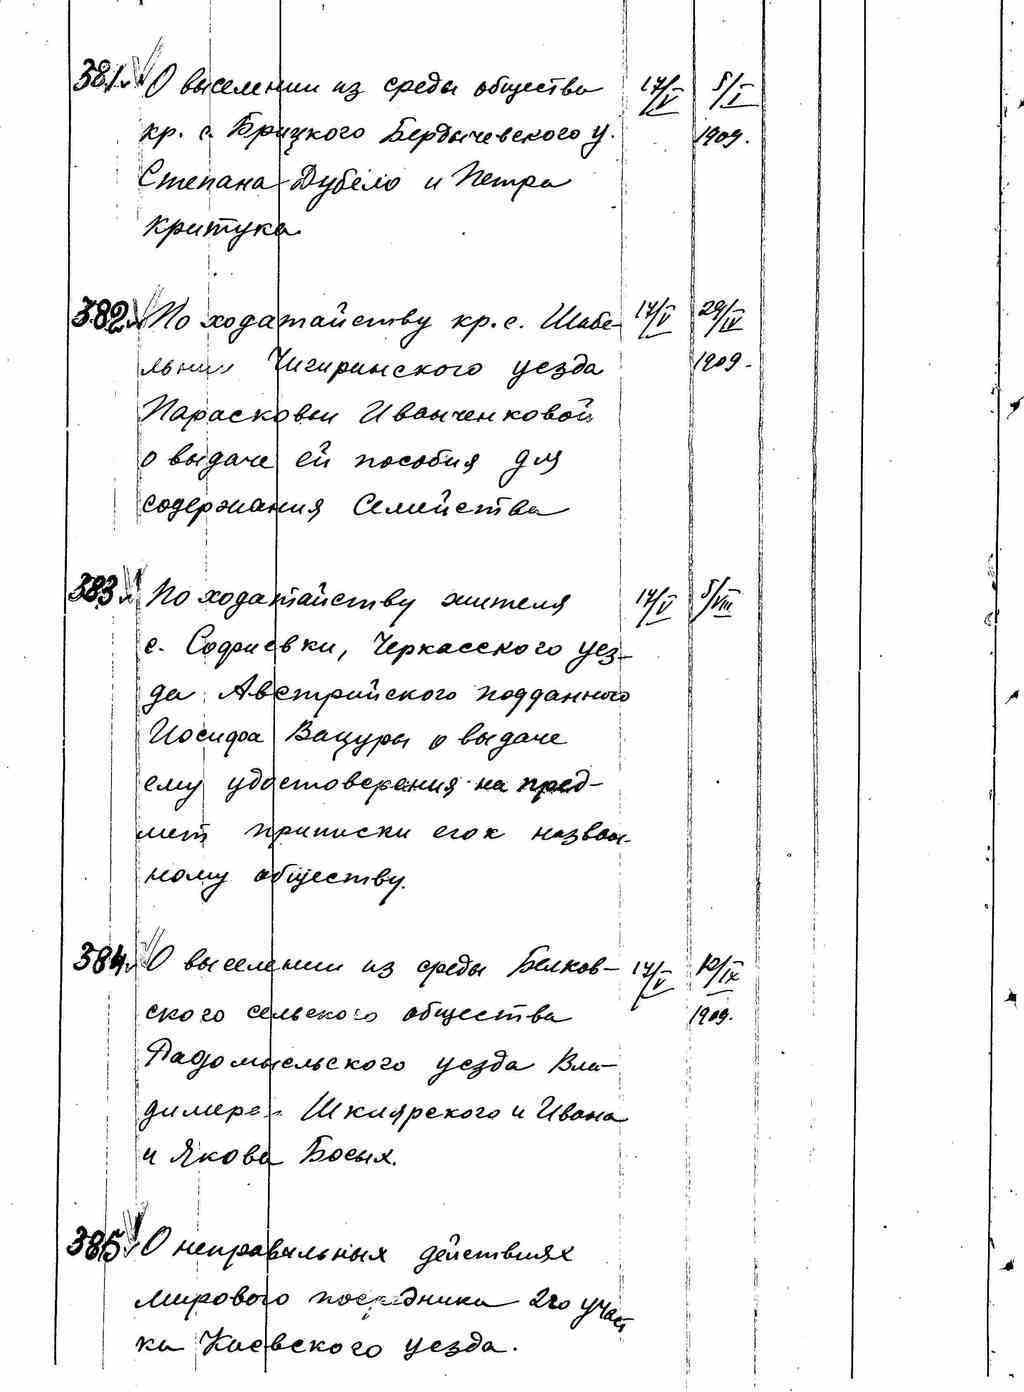 381 О выселении из среды общества 17/V 5/I
кр. с. Брицкого Бердычевского у. 1909.
Степана Дубело и Петра
Критука
382 По ходатайству кр. с. Шабе- 17/V 29/IV
льни Чигиринского уезда 1909.
Парасковьи Иванченковой
о выдаче ей пособия для
содержания Семейства
383 По ходатайству жителя 17/V 5/VIII
с. Софиевки, Черкасского уез-
да Австрийского подданного
Иосифа Вацуры о выдаче
ему удостоверения на пред-
мет приписки его к назван-
ному обществу.
384 О выселении из среды Белков- 17/V 12/IX
ского сельского общества 1909.
Радомысльского уезда Вла-
димера Шклярского и Ивана
и Якова Босых.
385 О неправильных действиях
мирового посредника 2го участ
ка Киевского уезда.